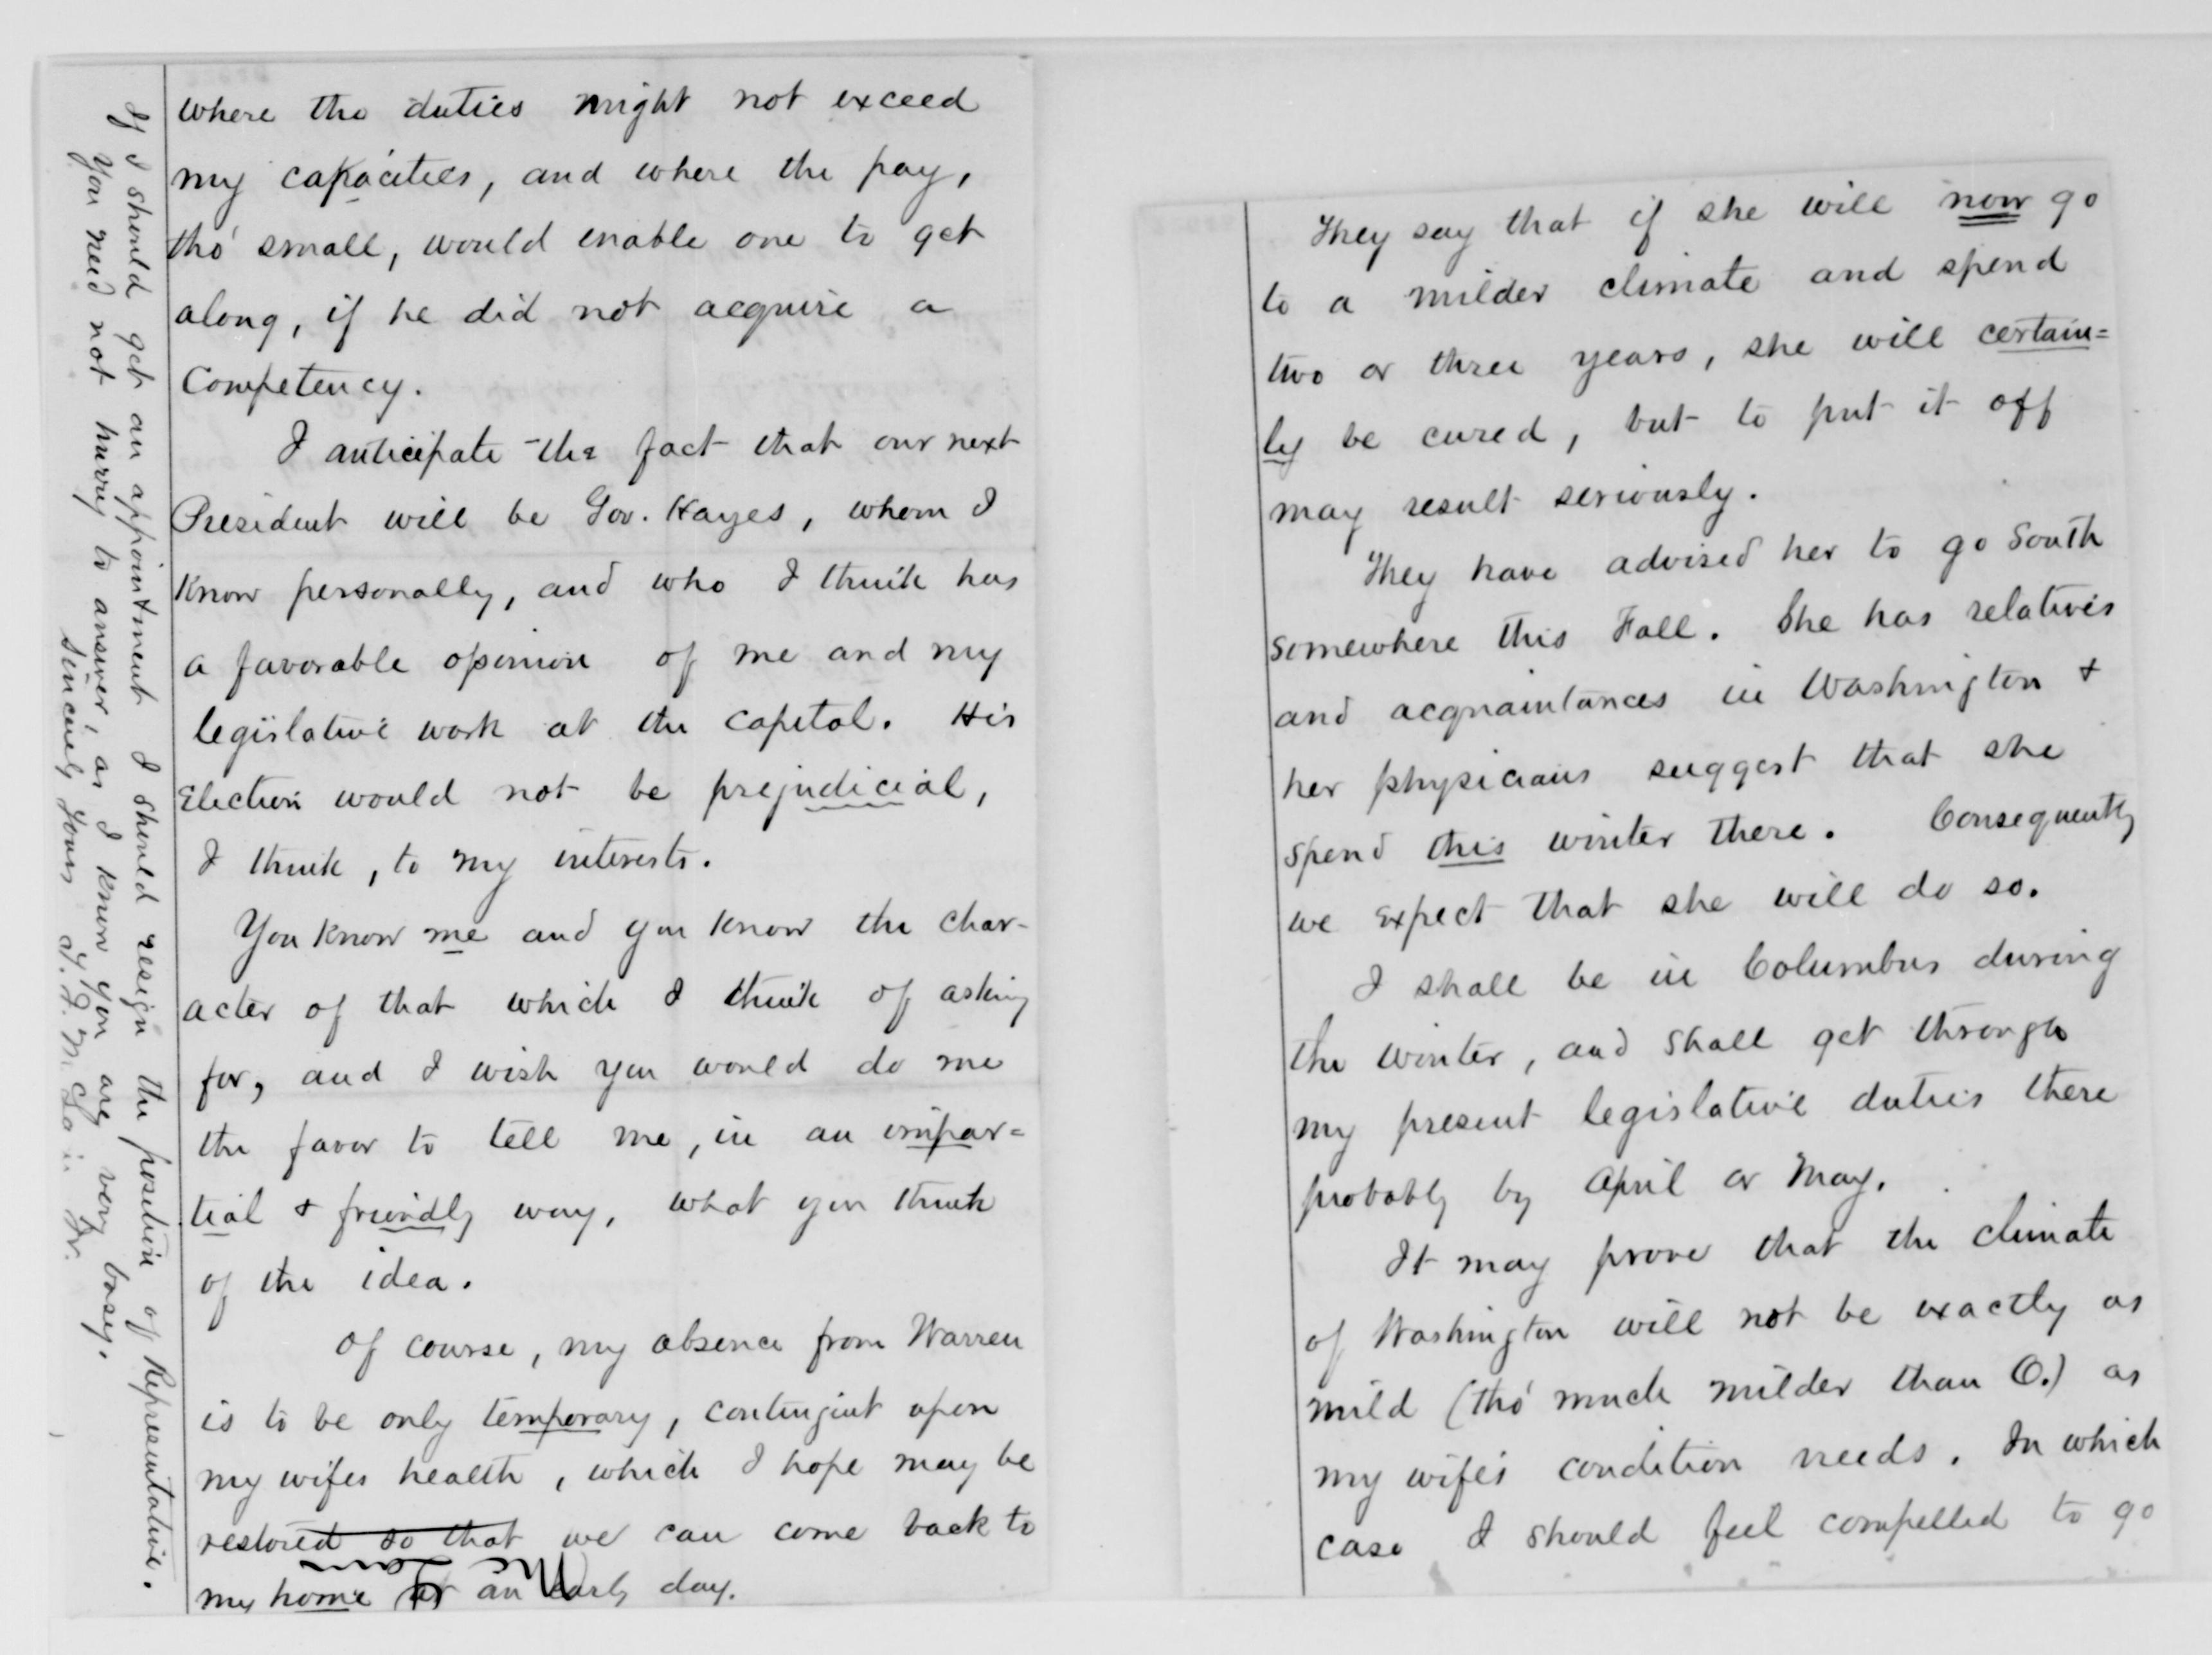 where the duties might not exceed
my capacities, and where the pay,
tho' small, would enable one to get
along, if he did not acquire a
Competency.
I anticipate the fact that our next
President will be Gov. Hayes, whom I
know personally, and who I think has
a favorable opinion of me and my
legislative work at the capital. His
Election would not be prejudicial,
I think, to my interests.
You know me and you know the char-
acter of that which I think of asking
for, and I wish you would do me
the favor to tell me, in an impar=
tial & friendly way, what you think
of the idea.
Of course, my absence from Warren
is to be only temporary, contingent upon
my wifes health, which I hope may be
restored so that we can come back to
my home at an early day.
If I should get an appointment I should resign the position of Representative.
You need not hurry to answer, as I know you are very busy.
Sincerely Yours
They say that if she will now go
to a milder climate and spend
two or three years, she will certain=
ly be cured, but to put it off
may result seriously.
They have advised her to go South
somewhere this Fall. She has relatives
and acquaintances in Washington &
her physicians suggest that she
spend this winter there. Consequently
we expect that she will do so.
I shall be in Columbus during
the winter, and shall get through
my present legislative duties there
probably by April or May.
It may prove that the climate
of Washington will not be exactly as
mild (tho' much milder than O.) as
my wife's condition needs. In which
case I should feel compelled to go